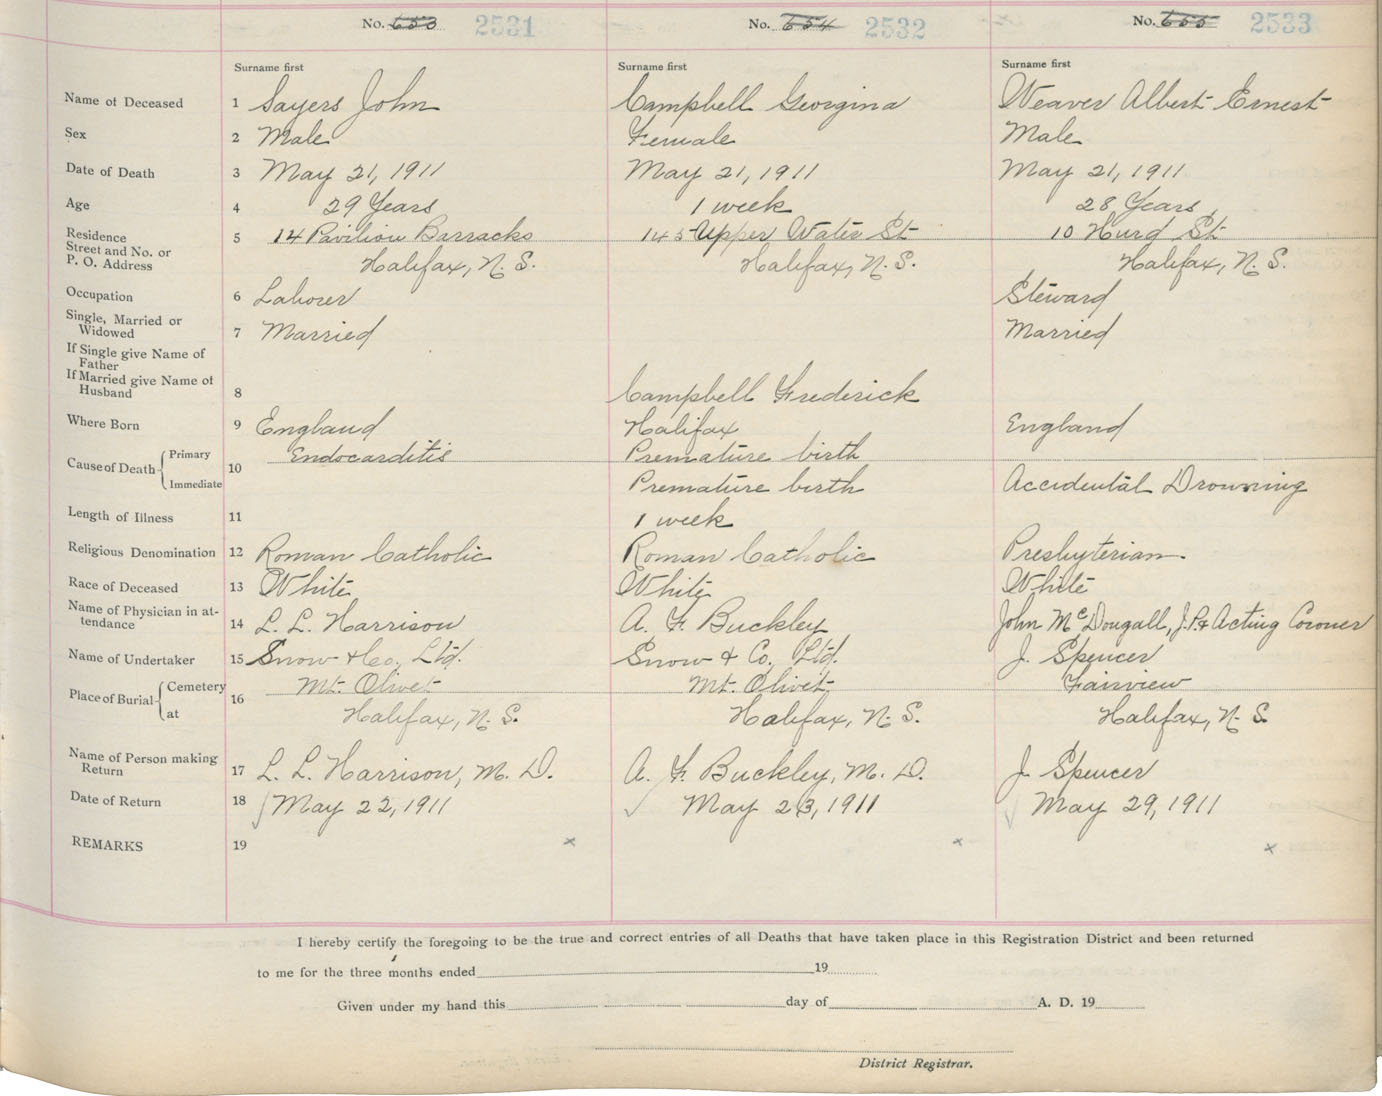 No. 653 2531 No. 654 2532 No. 655 2533
Surname first Surname first Surname first
Name of Deceased 1 Sayers John Campbell Georgina Weaver Albert Ernest
Sex 2 Male Female Male
Date of Death 3 May 21, 1911 May 21, 1911 May 21, 1911
Age 4 29 Years 1 week 28 Years
Residence 5 14 Pavilion Barracks 145 Upper Water St 10 Hurd St.
Street and No. or
P. O. Address Halifax, N. S. Halifax, N. S. Halifax, N. S.
Occupation 6 Laborer Steward
Single, Married or
Widowed 7 Married Married
If Single give Name of
Father
If Married give Name of
Husband 8 Campbell Frederick
Where Born 9 England Halifax England
Cause of Death Primary 10 Endocarditis Premature birth
Immediate Premature birth Accidental Drowning
Length of Illness 11 1 week
Religious Denomination 12 Roman Catholic Roman Catholic Presbyterian.
Race of Deceased 13 White White White
Name of Physician in at-
tendance 14 L. L. Harrison A. F. Buckley John McDougall, J.P. & Acting Coroner
Name of Undertaker 15 Snow & Co., Ltd. Snow & Co, Ltd. J. Spencer
Place of Burial Cemetery 16 Mt. Olivet Mt. Olivet Fairview
at Halifax, N. S. Halifax, N. S. Halifax, N. S.
Name of Person making
Return 17 L. L. Harrison, M. D. A. F. Buckley, M. D. J. Spencer
Date of Return 18 May 22, 1911 May 23, 1911 May 29, 1911
REMARKS 19 x x x
I hereby certify the foregoing to be the true and correct entries of all Deaths that have taken place in this Registration District and been returned
to me for the three months ended 19
Given under my hand this day of A. D. 19
District Registrar.